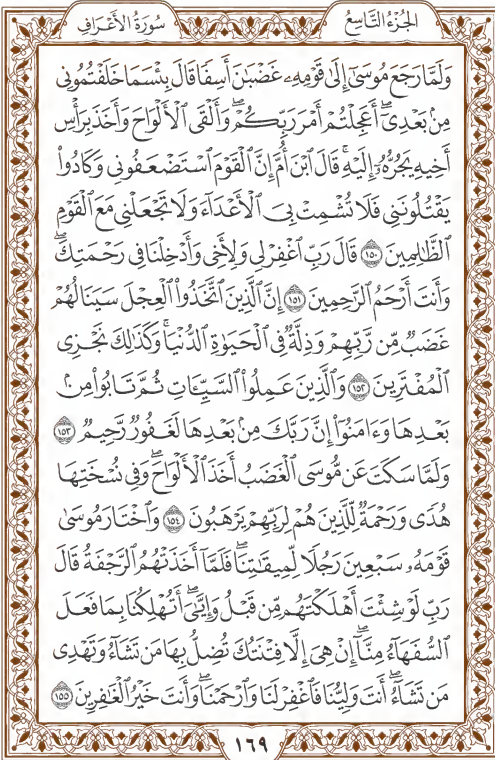 الجُزْءُ التَّاسِعُ
سُورَةُ الأَعْرَافِ
وَلَمَّا رَجَعَ مُوسَىٰٓ إِلَىٰ قَوْمِهِۦ غَضْبَٰنَ أَسِفٗا قَالَ بِئۡسَمَا خَلَفۡتُمُونِي
مِنۢ بَعۡدِيٓۖ أَعَجِلۡتُمۡ أَمۡرَ رَبِّكُمۡۖ وَأَلۡقَى ٱلۡأَلۡوَاحَ وَأَخَذَ بِرَأۡسِ
أَخِيهِ يَجُرُّهُۥٓ إِلَيۡهِۚ قَالَ ٱبۡنَ أُمَّ إِنَّ ٱلۡقَوۡمَ ٱسۡتَضۡعَفُونِي وَكَادُواْ
يَقۡتُلُونَنِي فَلَا تُشۡمِتۡ بِيَ ٱلۡأَعۡدَآءَ وَلَا تَجۡعَلۡنِي مَعَ ٱلۡقَوۡمِ
ٱلظَّٰلِمِينَ ١٥٠ قَالَ رَبِّ ٱغۡفِرۡ لِي وَلِأَخِي وَأَدۡخِلۡنَا فِي رَحۡمَتِكَۖ
وَأَنتَ أَرۡحَمُ ٱلرَّٰحِمِينَ ١٥١ إِنَّ ٱلَّذِينَ ٱتَّخَذُواْ ٱلۡعِجۡلَ سَيَنَالُهُمۡ
غَضَبٞ مِّن رَّبِّهِمۡ وَذِلَّةٞ فِي ٱلۡحَيَوٰةِ ٱلدُّنۡيَاۚ وَكَذَٰلِكَ نَجۡزِي
ٱلۡمُفۡتَرِينَ ١٥٢ وَٱلَّذِينَ عَمِلُواْ ٱلسَّيِّـَٔاتِ ثُمَّ تَابُواْ مِنۢ
بَعۡدِهَا وَءَامَنُوٓاْ إِنَّ رَبَّكَ مِنۢ بَعۡدِهَا لَغَفُورٞ رَّحِيمٞ ١٥٣
وَلَمَّا سَكَتَ عَن مُّوسَى ٱلۡغَضَبُ أَخَذَ ٱلۡأَلۡوَاحَۖ وَفِي نُسۡخَتِهَا
هُدٗى وَرَحۡمَةٞ لِّلَّذِينَ هُمۡ لِرَبِّهِمۡ يَرۡهَبُونَ ١٥٤ وَٱخۡتَارَ مُوسَىٰ
قَوۡمَهُۥ سَبۡعِينَ رَجُلٗا لِّمِيقَٰتِنَاۖ فَلَمَّآ أَخَذَتۡهُمُ ٱلرَّجۡفَةُ قَالَ
رَبِّ لَوۡ شِئۡتَ أَهۡلَكۡتَهُم مِّن قَبۡلُ وَإِيَّٰيَۖ أَتُهۡلِكُنَا بِمَا فَعَلَ
ٱلسُّفَهَآءُ مِنَّآۖ إِنۡ هِيَ إِلَّا فِتۡنَتُكَ تُضِلُّ بِهَا مَن تَشَآءُ وَتَهۡدِي
مَن تَشَآءُۖ أَنتَ وَلِيُّنَا فَٱغۡفِرۡ لَنَا وَٱرۡحَمۡنَاۖ وَأَنتَ خَيۡرُ ٱلۡغَٰفِرِينَ ١٥٥
١٦٩